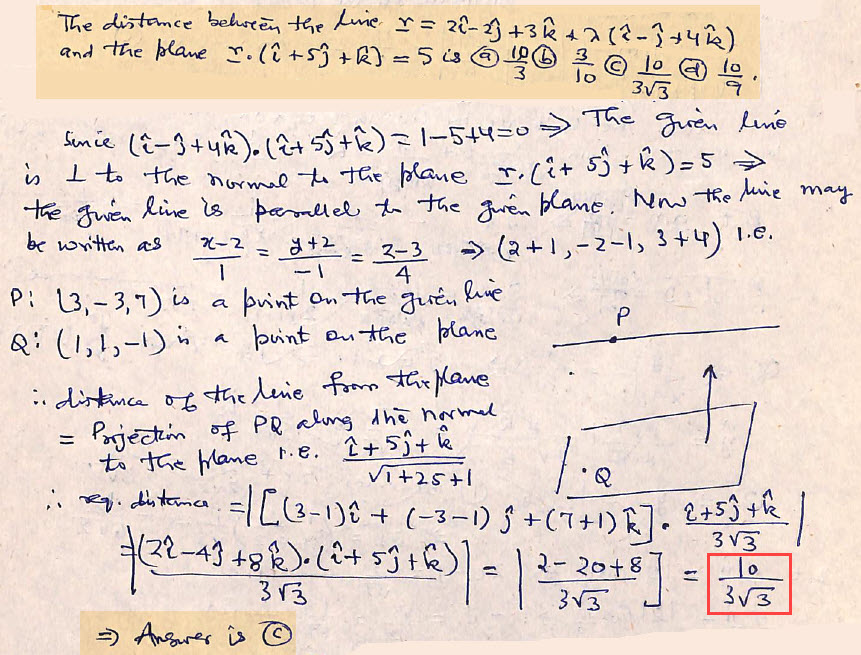 The distance between the line r = 2î-2ĵ+3k̂+λ(î-ĵ+4k̂)
and the plane r.(î+5ĵ+k̂) = 5 is ⓐ 10/3 ⓑ 3/10 ⓒ 10/3√3 ⓓ 10/9.
Since (î-ĵ+4k̂).(î+5ĵ+k̂) = 1-5+4=0 ⇒ The given line
is ⊥ to the normal to the plane r.(î+5ĵ+k̂)=5 ⇒
the given line is parallel to the given plane. Now the line may
be written as (x-2)/1 = (y+2)/-1 = (z-3)/4 ⇒ (2+1,-2-1, 3+4) i.e.
P: (3,-3,7) is a point on the given line
Q: (1,1,-1) is a point on the plane
P
∴ distance of the line from the plane
= Projection of PQ along the normal
to the plane i.e. (î+5ĵ+k̂)/√1+25+1
.Q
∴ req. distance = |[(3-1)î + (-3-1)ĵ+(7+1)k̂]. (î+5ĵ+k̂)/3√3|
=|(2î-4ĵ+8k̂).(î+5ĵ+k̂)/3√3| = |2-20+8/3√3] = 10/3√3
⇒ Answer is ⓒ